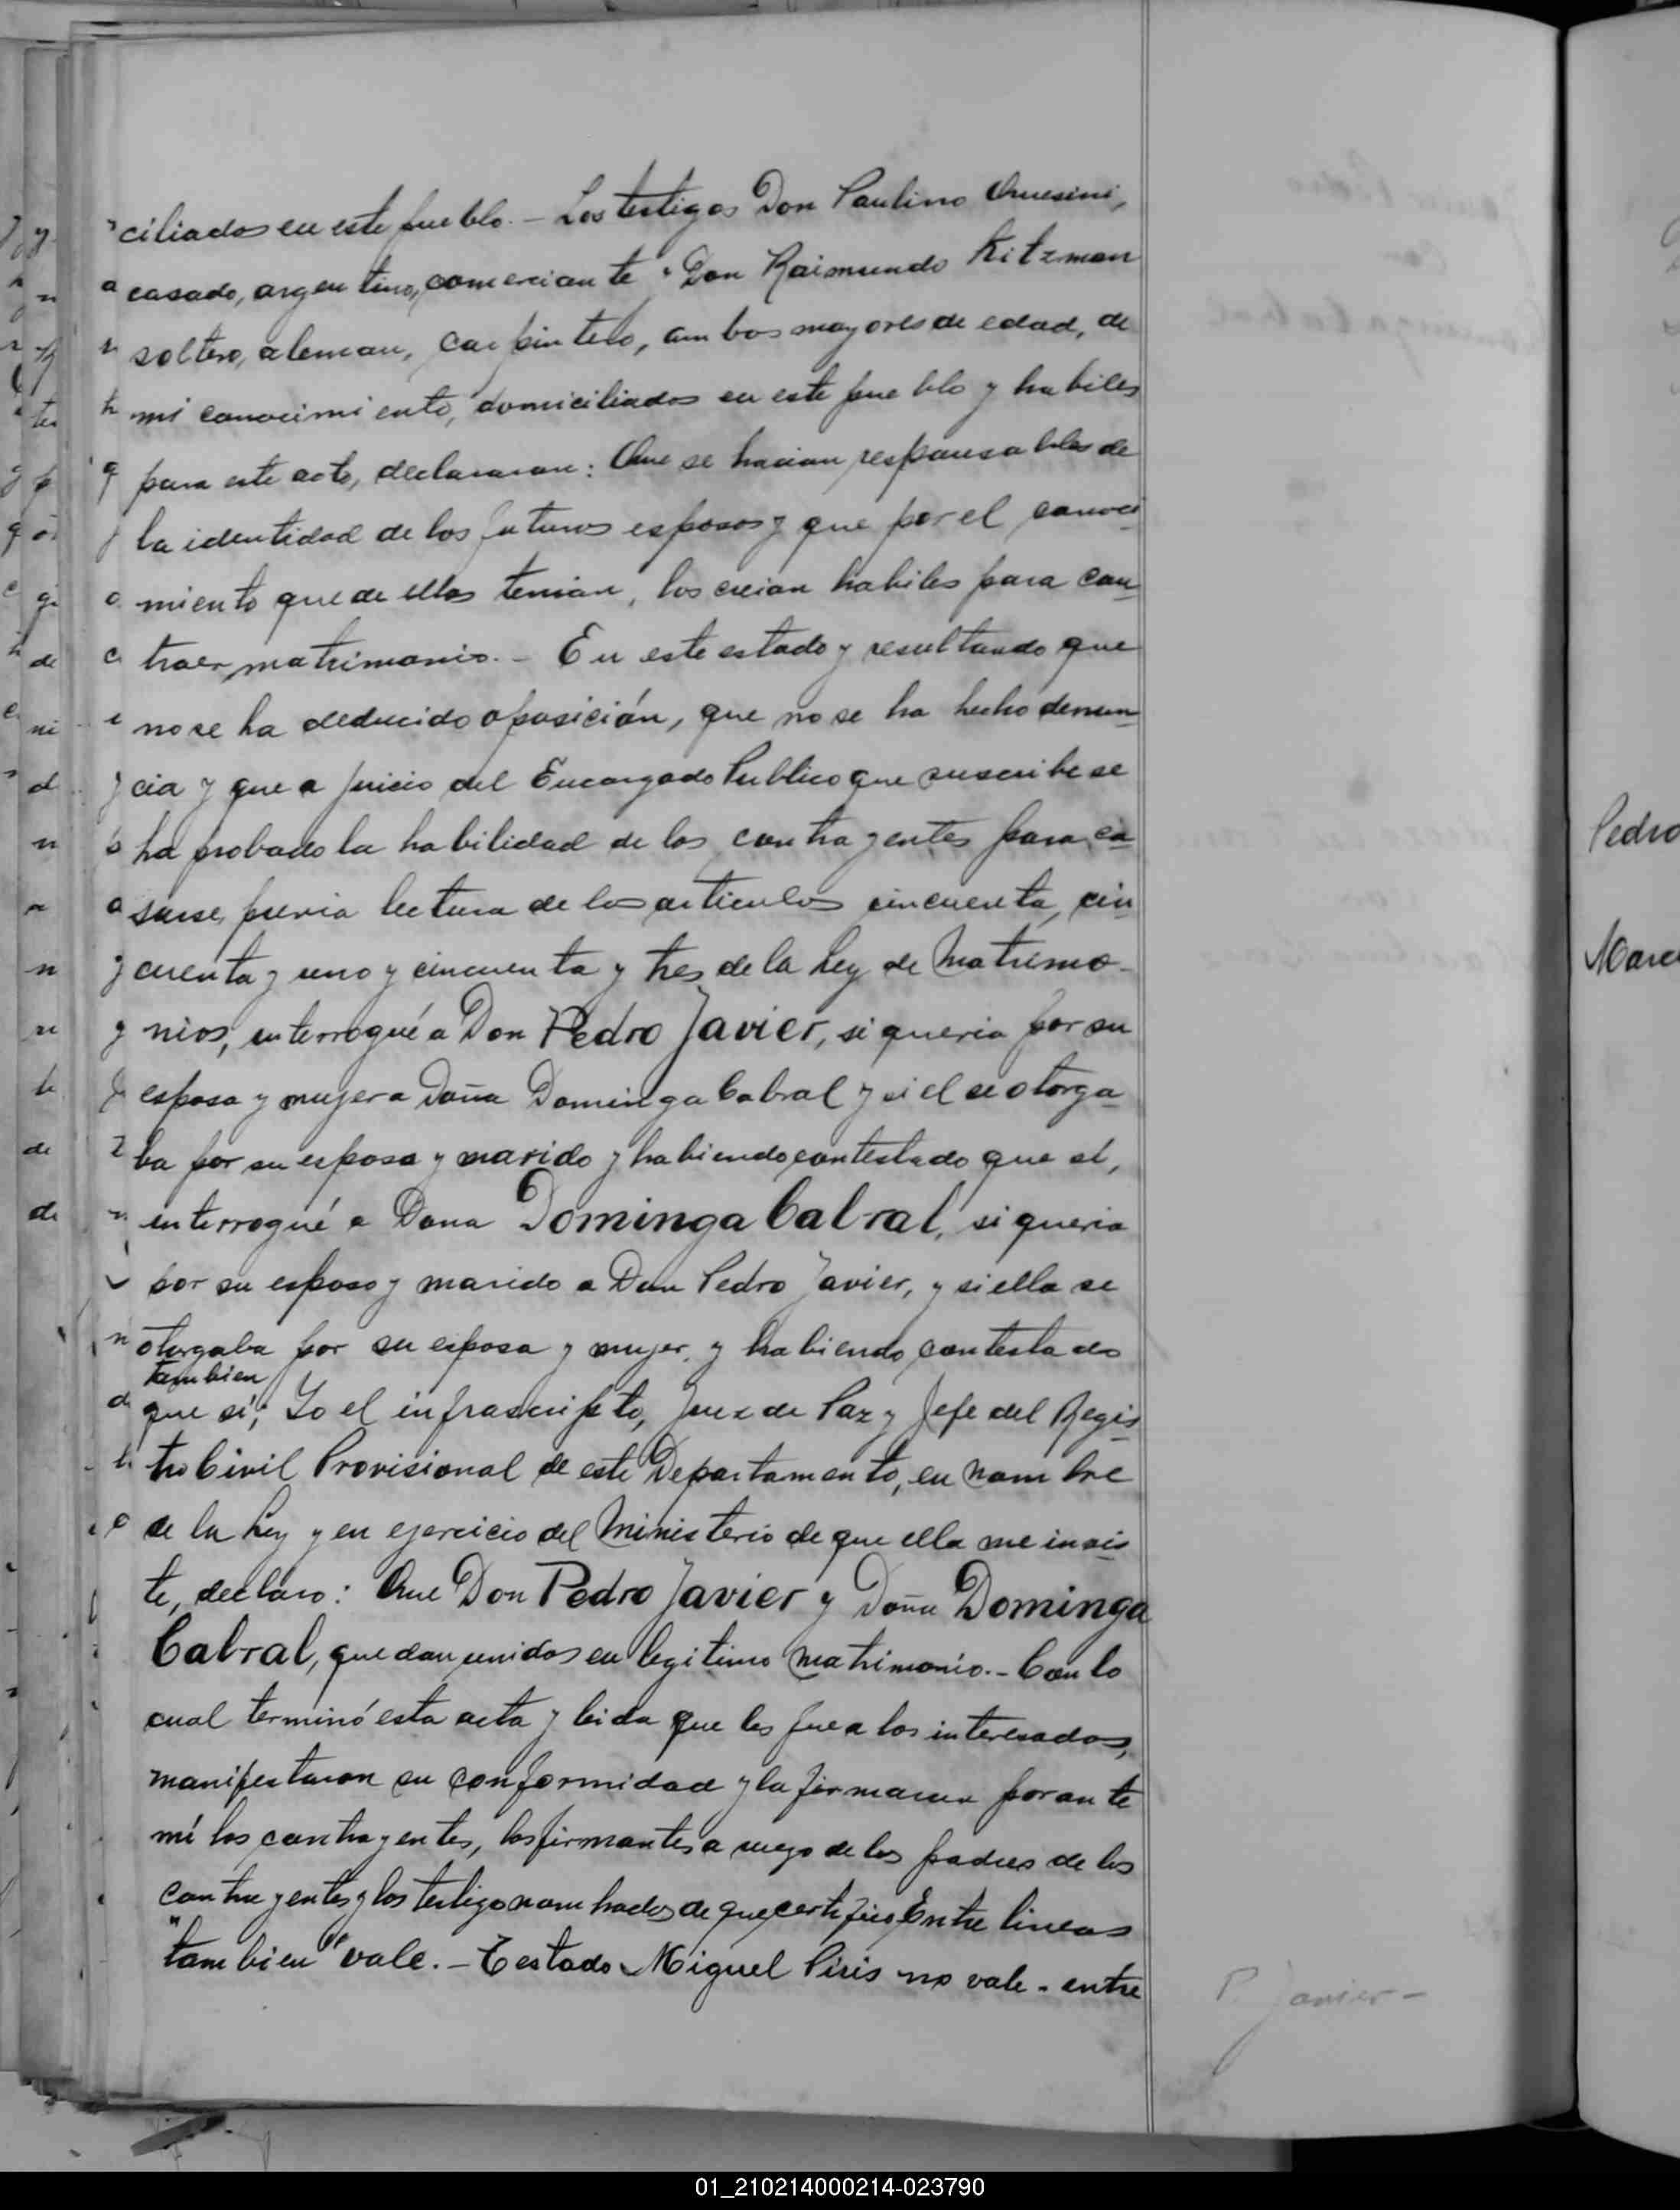 ciliados en este pueblo.- Los testigos Don Paulino
casado, argentino, comerciante y Don Raimundo Kitzman
soltero, aleman, carpintero, ambos mayores de edad, de
mi conocimiento, domiciliados en este pueblo y habiles
para este acto, declararon: Que se hacian responsables de
la identidad de los futuros esposos y que por el conoci
miento que de ellos tenian, los creian habiles para con
traer matrimonio.- En este estado y resultando que
no se ha deducido oposición, que no se ha hecho denun
cia y que a juicio del Encargado Publico que suscribe se
ha probado la habilidad de los contrayentes para ca
sarse, previa lectura de los articulos cincuenta, cin
cuenta y uno y cincuenta y tres de la Ley de Matrimo-
nios, interrogué a Don Pedro Javier, si queria por su
esposa y mujer a Doña Dominga Cabral y si el se otorga
ba por su esposo y marido y habiendo contestado que si,
interrogué a Dona Dominga Cabral, si queria
por su esposo y marido a Don Pedro Javier, y si ella se
otorgaba por su esposa y mujer y habiendo contestado
tambien
que sí; Yo el infrascripto, Juez de Paz y Jefe del Regis
tro Civil Provisional de este Departamento, en nombre
de la Ley y en ejercicio del Ministerio de que ella me invis
te, declaro: Que Don Pedro Javier y Doña Dominga
Cabral, quedan unidos en legitimo matrimonio.- Con lo
cual terminó esta acta y leida que les fue a los interesados,
manifestaron su conformidad y la firmaron por ante
mí los contrayentes, los firmantes a ruego de los padres de los
contrayentes y los testigos nombrados de que certifico Entre lineas
"tambien" vale.- Testado Miguel Piris no vale - entre
P. Javier -
Pedro
01_210214000214-023790